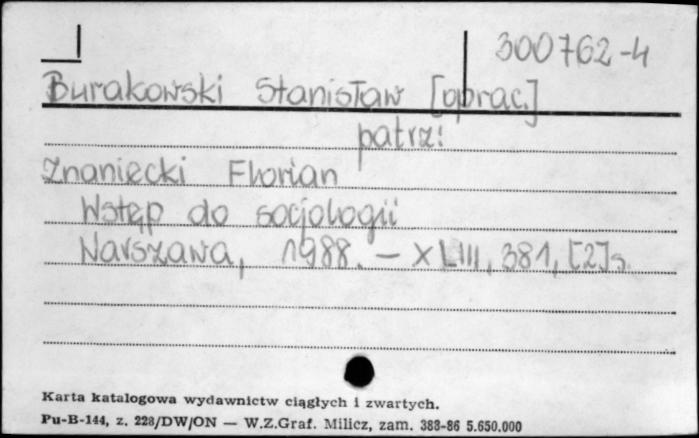 300762-4
Burakowski Stanisław [oprac.]
patrz:
Znaniecki Florian
Wstęp do socjologii
Warszawa, 1988. – XLIII, 381, [2] s.
Karta katalogowa wydawnictw ciągłych i zwartych.
Pu-B-144, z. 228/DW/ON — W.Z.Graf. Milicz, zam. 388-86 5.650.000